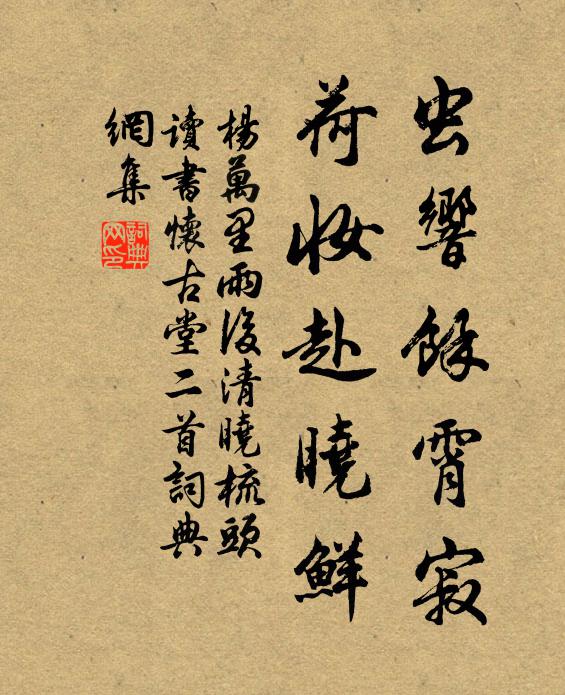 虫響餘霄寂
荷妝赴曉鮮
楊萬里雨後清曉梳頭
讀書懷古堂二首詞典
網集
詞典
网印